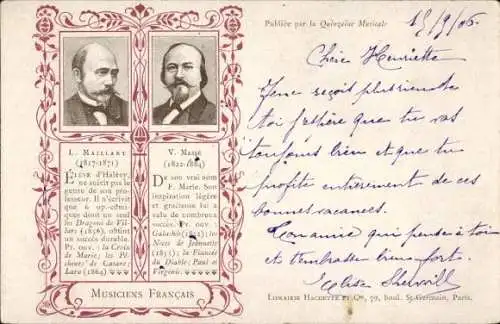 Publiée par la Quinzaine Musicale
15/9/06
Chère Henriette
Je ne reçois plus rien de
toi j'espère que tu vas
toujours bien et que tu
profite entièrement de ces
bonnes vacances.
Ton amie qui pense à toi
et t'embrasse bien fort.
Elise
LIBRAIRIE HACHETTE ET Cie, 79, boul. St-Germain, Paris.
L. MAILLART
(1817-1871)
ÉLÈVE d'Halévy,
ne suivit pas le
genre de son pro-
fesseur. Il n'écrivit
que 6 op.-com-
iques dont un seul
les Dragons de Vil-
lars (1856), obtint
un succès durable.
Pr. ouv. : la Croix
de Marie; les Pê-
cheurs de Catane;
Lara (1864)
V. MASSÉ
(1822-1884)
DE son vrai nom
F. Marie. Son
inspiration légère
et gracieuse lui a
valu de nombreux
succès. Pr. ouv. :
Galathée (1852); les
Noces de Jeannette
(1853); la Fiancée
du Diable; Paul et
Virginie.
MUSICIENS FRANÇAIS